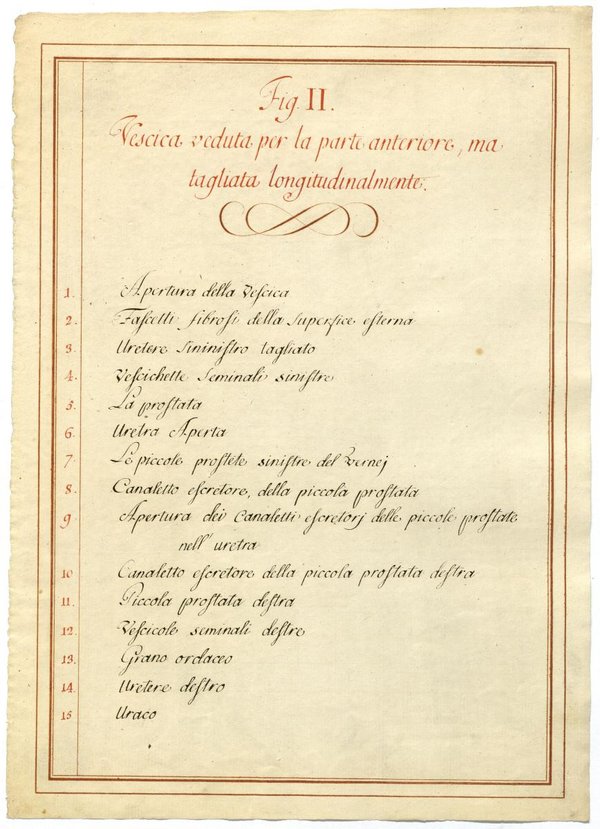 Fig. II.
Vescica veduta per la parte anteriore, ma
tagliata longitudinalmente.
1. Apertura della Veſcica
2. Faſcetti fibroſi della superfice eſterna
3. Uretere Sininiſtro tagliato
4. Veſcichette Seminali siniſtre
5. La proſtata
6. Uretra Aperta
7. Le piccole proſtete siniſtre del Vernej
8. Canaletto eſcretore, della piccola proſtata
9 Apertura dei Canaletti eſcretorj delle piccole proſtate
nell' uretra
10 Canaletto eſcretore della piccola proſtata deſtra
11. Piccola proſtata deſtra
12. Veſcicole seminali deſtre
13. Grano ordaceo
14. Uretere deſtro
15 Uraco